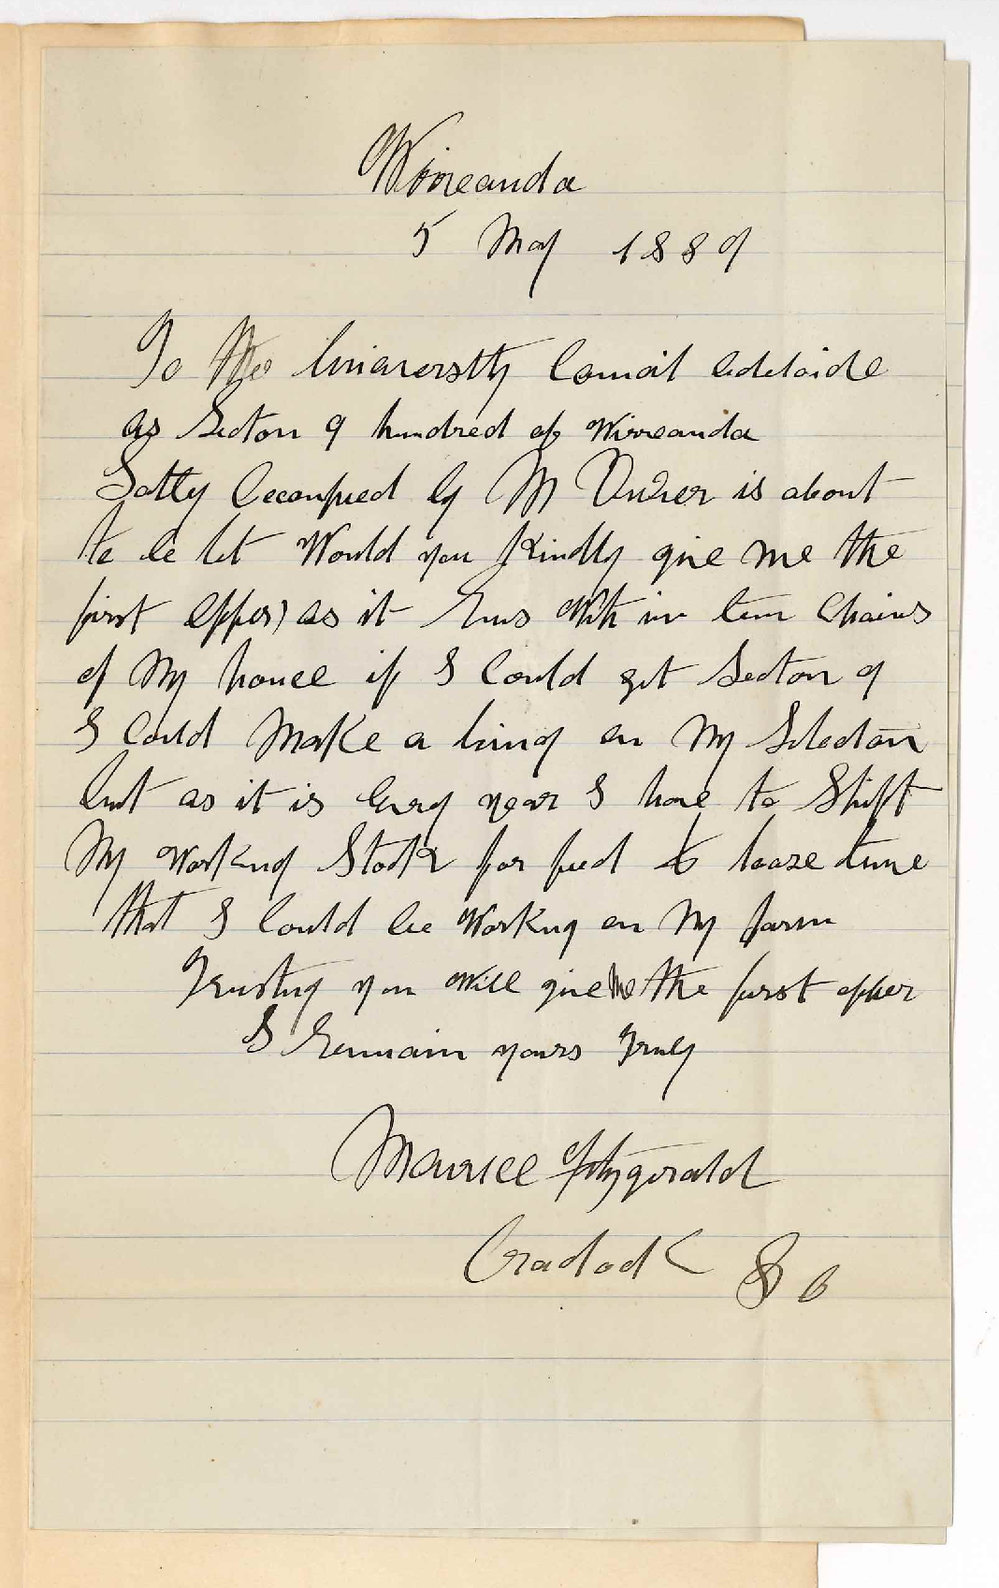 Wirreanda
5 May 1889
To the Uniaversitty Council Adelaide
as Section 9 hundred of Wirreanda
Latly Occoupied by Mr is about
to be let Would you Kindly give me the
first offer as it Runs With in ten Chains
of My house if I Could get Section 9
I Could Make a living on My Selection
but as it is Every year I have to Shift
My Working Stock for feed & loose time
that I Could be Working on My farm
Trusting you Will give me the first offer
I Remain yours Truly
Maurice Fitzgerald
Cradock